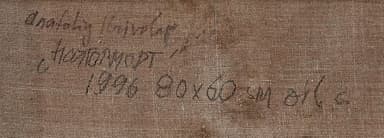 Anatoliy Krivolap
"НАТЮРМОРТ"
1996 80x60 sm oil c